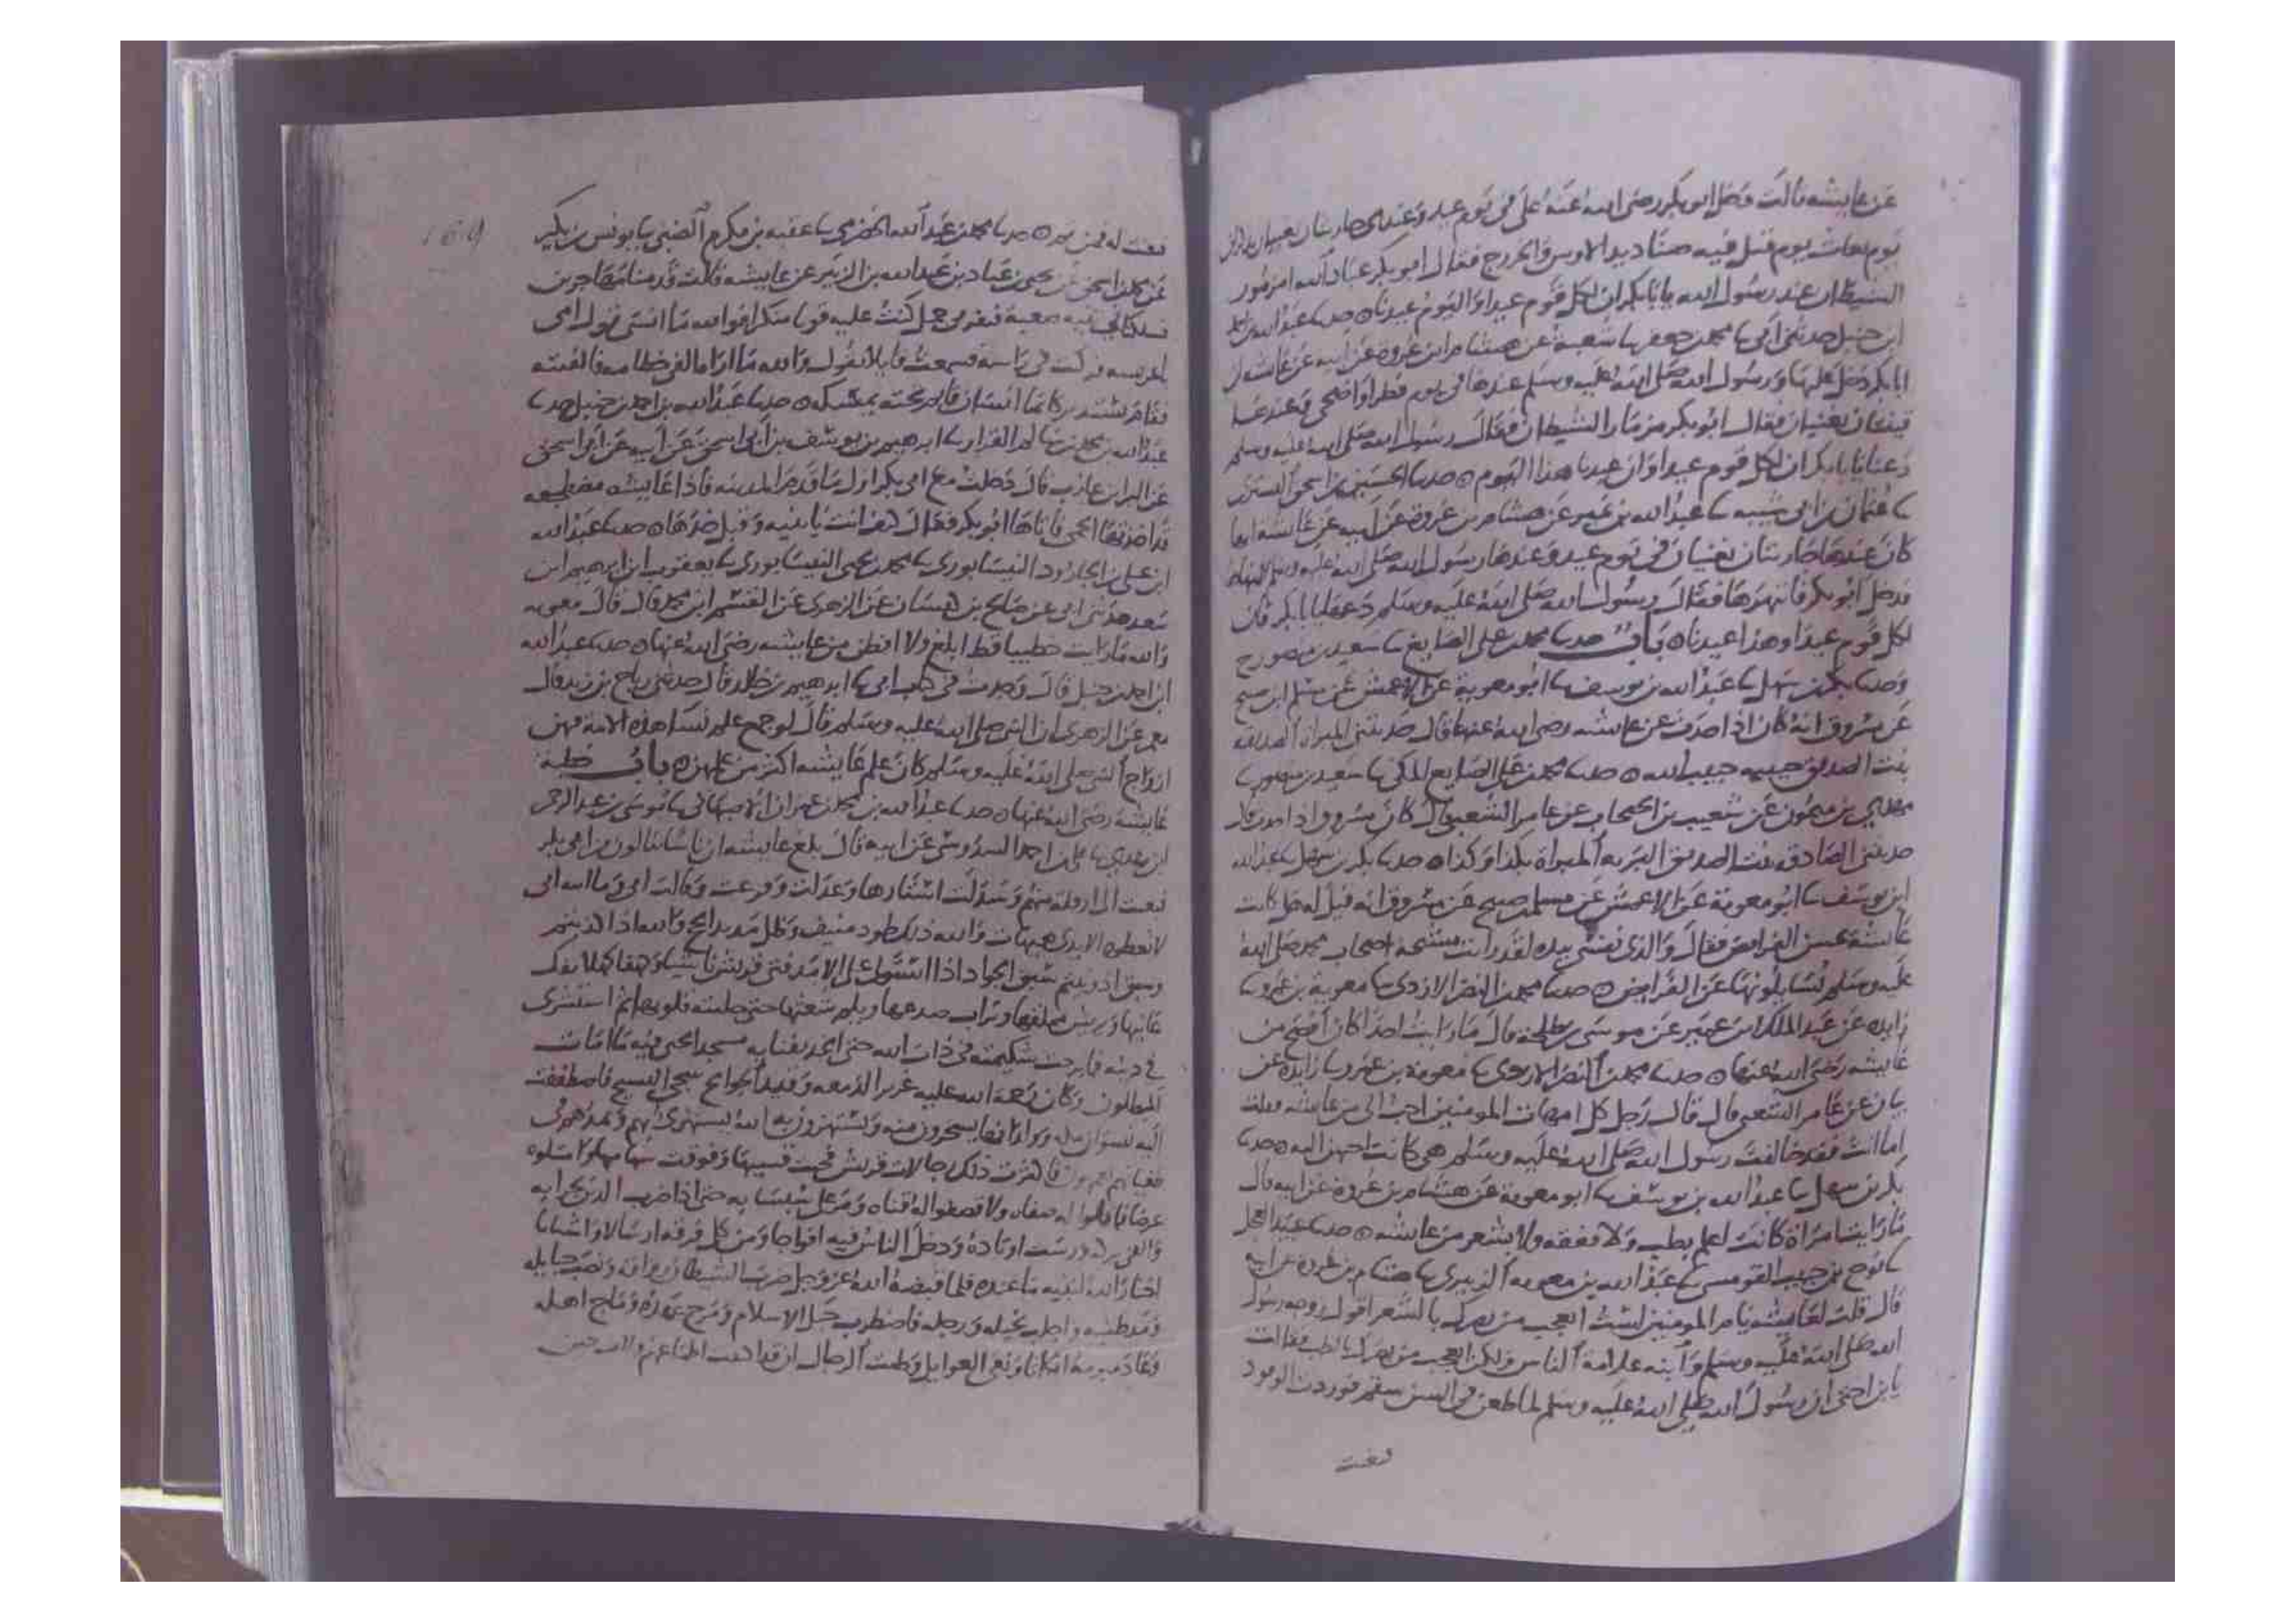 عن عايشه قالت دخل ابو بكر رضى الله عنه على فى يوم عيد وعندى جاريتان تغنيان
يوم بعاث يوم قتل فيه صناديد الاوس والخزرج فقال ابو بكر عباد الله امزمور
الشيطان عند رسول الله يا ابا بكر ان لكل قوم عيدا واليوم عيدنا ه حدثنا عبد الله
ابن حنبل حدثنى ابى ثنا محمد بن جعفر ثنا شعبة عن هشام ابن عروة عن ابيه عن عائشه ان
ابا بكر دخل عليها ورسول الله صلى الله عليه وسلم عندها فى يوم فطر او اضحى وعندها
قينتان تغنيان فقال ابو بكر مزمار الشيطان فقال رسول الله صلى الله عليه وسلم
دعنا يا ابا بكر ان لكل قوم عيدا وان عيدنا هذا اليوم ه حدثنا الحسين بن اسحق التسترى
ثنا عثمان بن ابى شيبه ثنا عبد الله بن نمير عن هشام بن عروة عن ابيه عن عائشة انها
كان عندها جاريتان تغنيان فى يوم عيد وعندها رسول الله صلى الله عليه وسلم
فدخل ابو بكر فانتهرها فقال رسول الله صلى الله عليه وسلم دعها يا ابا بكر فان
لكل قوم عيدا وهذا عيدنا ه باب حدثنا محمد بن على الصايغ ثنا سعيد بن منصور ح
وحدثنا بكر بن سهل ثنا عبد الله بن يوسف ثنا ابو معوية عن الاعمش عن مسلم ابن صبيح
عن مسروق انه كان اذا حدث عن عايشه رضى الله عنها قال حدثتنى المبراه الصديقه
بنت الصديق حبيبه حبيب الله ه حدثنا محمد بن على الصايغ المكى ثنا سعيد بن منصور ثنا
مهدى بن ميمون عن شعيب بن الحبحاب عن عامر الشعبى قال كان مسروق اذا حدث قال
حدثتنى الصادقه بنت الصديق البريه المبراة بكذا وكذا ه حدثنا بكر بن سهل ثنا عبد الله
ابن يوسف ثنا ابو معوية عن الاعمش عن مسلم بن صبيح عن مسروق انه قيل له هل كانت
عايشة تحسن الفرايض فقال والذى نفسى بيده لقد رايت مشيخة اصحاب محمد صلى الله
عليه وسلم يسايلونها عن الفرايض ه حدثنا محمد بن النضر الازدى ثنا معوية بن عمرو ثنا
زايده عن عبد الملك بن عمير عن موسى بن طلحة قال ما رايت احدا كان افصح من
عايشه رضى الله عنها ه حدثنا محمد بن النضر الازدى ثنا معوية بن عمرو ثنا زايدة عن
بيان عن عامر الشعبى قال قال رجل كل امهات المومنين احب الى من عايشه فقلت
اما انت فقد خالفت رسول الله صلى الله عليه وسلم هى كانت احبهن اليه ه حدثنا
بكر بن سهل ثنا عبد الله بن يوسف ثنا ابو معوية عن هشام بن عروة عن ابيه قال
ما رايت امراة كانت اعلم بطب ولا بفقه ولا بشعر من عايشه ه حدثنا عبيد العجل
ثنا نوح بن حبيب القومسى ثنا عبد الله بن معويه الزبيرى ثنا هشام بن عروة عن ابيه
قال قلت لعايشه يا ام المومنين لست اعجب من بصرك بالشعر اقول زوجه رسول
الله صلى الله عليه وسلم وابنه علامة الناس ولكن اعجب من بصرك بالطب فقالت
يا بن اختى ان رسول الله صلى الله عليه وسلم لما طعن فى السن سقم فوردت الوفود
فنعت
169
فنعت له فمن ثم ه حدثنا محمد بن عبد الله الحضرمى ثنا عقبه بن مكرم الضبى ثنا يونس بن بكير
عن محمد بن اسحق عن يحيى بن عباد بن عبد الله بن الزبير عن عايشه قالت قدمنا مهاجرين
فسلكنا فى ثنيه صعبة فنفر بى جمل كنت عليه نفورا منكرا فوالله ما انسى قول امى
يا عريسه فركب بى راسه فسمعت قايلا يقول والله ما اراه القى خطامه فالقيته
فقام يستدير كانما انسان قايم تحته يمسكه ه حدثنا عبد الله بن احمد بن حنبل حدثنا
عبد الله بن محمد بن سالم القزاز ثنا ابرهيم بن يوسف بن ابى اسحق عن ابيه عن ابى اسحق
عن البرا بن عازب قال دخلت مع ابى بكر اول ما قدم المدينه فاذا عايشه مضطجعه
قد اخذتها الحمى فاتاها ابو بكر فقال كيف انت يا بنيه وقبل خدها ه حدثنا عبد الله
ابن على بن الجارود النيسابورى ثنا محمد بن يحيى النيسابورى ثنا يعقوب ابن ابرهيم ابن
سعد حدثنى ابى عن صالح بن كيسان عن الزهرى عن القسم ابن محمد قال قال معويه
والله ما رايت خطيبا قط ابلغ ولا افطن من عايشه رضى الله عنها ه حدثنا عبد الله
ابن احمد بن حنبل قال وجدت فى كتاب ابى ثنا ابرهيم بن خالد قال حدثنى رباح بن زيد قال
معمر عن الزهرى ان النبى صلى الله عليه وسلم قال لو جمع علم نسا هذه الامة فيهن
ازواج النبى صلى الله عليه وسلم كان علم عايشه اكثر من علمهن ه باب خطبة
عايشة رضى الله عنها ه حدثنا عبد الله بن محمد بن عمران الاصبهانى ثنا موسى بن عبد الرحمن
ابن مهدى ثنا على بن احمد السدوسى عن ابيه قال بلغ عايشه ان ناسا ينالون من ابى بكر
فبعثت الى ازفلة منهم وسدلت استارها وعذلت وقرعت وقالت ابى وما ابيه ابى
لا تعطوه الايدى هيهات والله ذلك طود منيف وظل مديد انجح والله اذ اكذبتم
وسبق اذ ونيتم سبق الجواد اذا استولى على الامد فتى قريش ناشيا وكهفها كهلا يفك
عانيها ويريش مملقها ويراب صدعها ويلم شعثها حتى حليته قلوبها ثم استشرى
فى دينه فما برحت شكيمته فى ذات الله حتى اتخذ بفنايه مسجدا يحيى فيه ما امات
المبطلون وكان رحمة الله عليه غزير الدمعه وقيذ الجوانح شجى النشيج فاصطفقت
اليه نسوان مكه وولدانها يسخرون منه ويستهزون به الله يستهزى بهم ويمدهم فى
طغيانهم يعمهون فاكبرت ذلك رجالات قريش فحنت قسيها وفوقت سهامها وامتثلوه
غرضا فما فلوا له صفاه ولا قصفوا له قناه ومر على سيسايه حتى اذا ضرب الدين بجرانه
والقى بركه ورست اوتاده ودخل الناس فيه افواجا ومن كل فرقه ارسالا واشتاتا
اختار الله لنبيه ما عنده فلما قبضه الله عز وجل ضرب الشيطان رواقه ونصب حبايله
ومد طنبه واجلب بخيله ورجله فاضطرب حبل الاسلام ومرج عهده وماج اهله
وعاد مبرمه انكاثا وبغى الغوايل وظنت الرجال ان قد اكثبت اطماعهم ولات حين